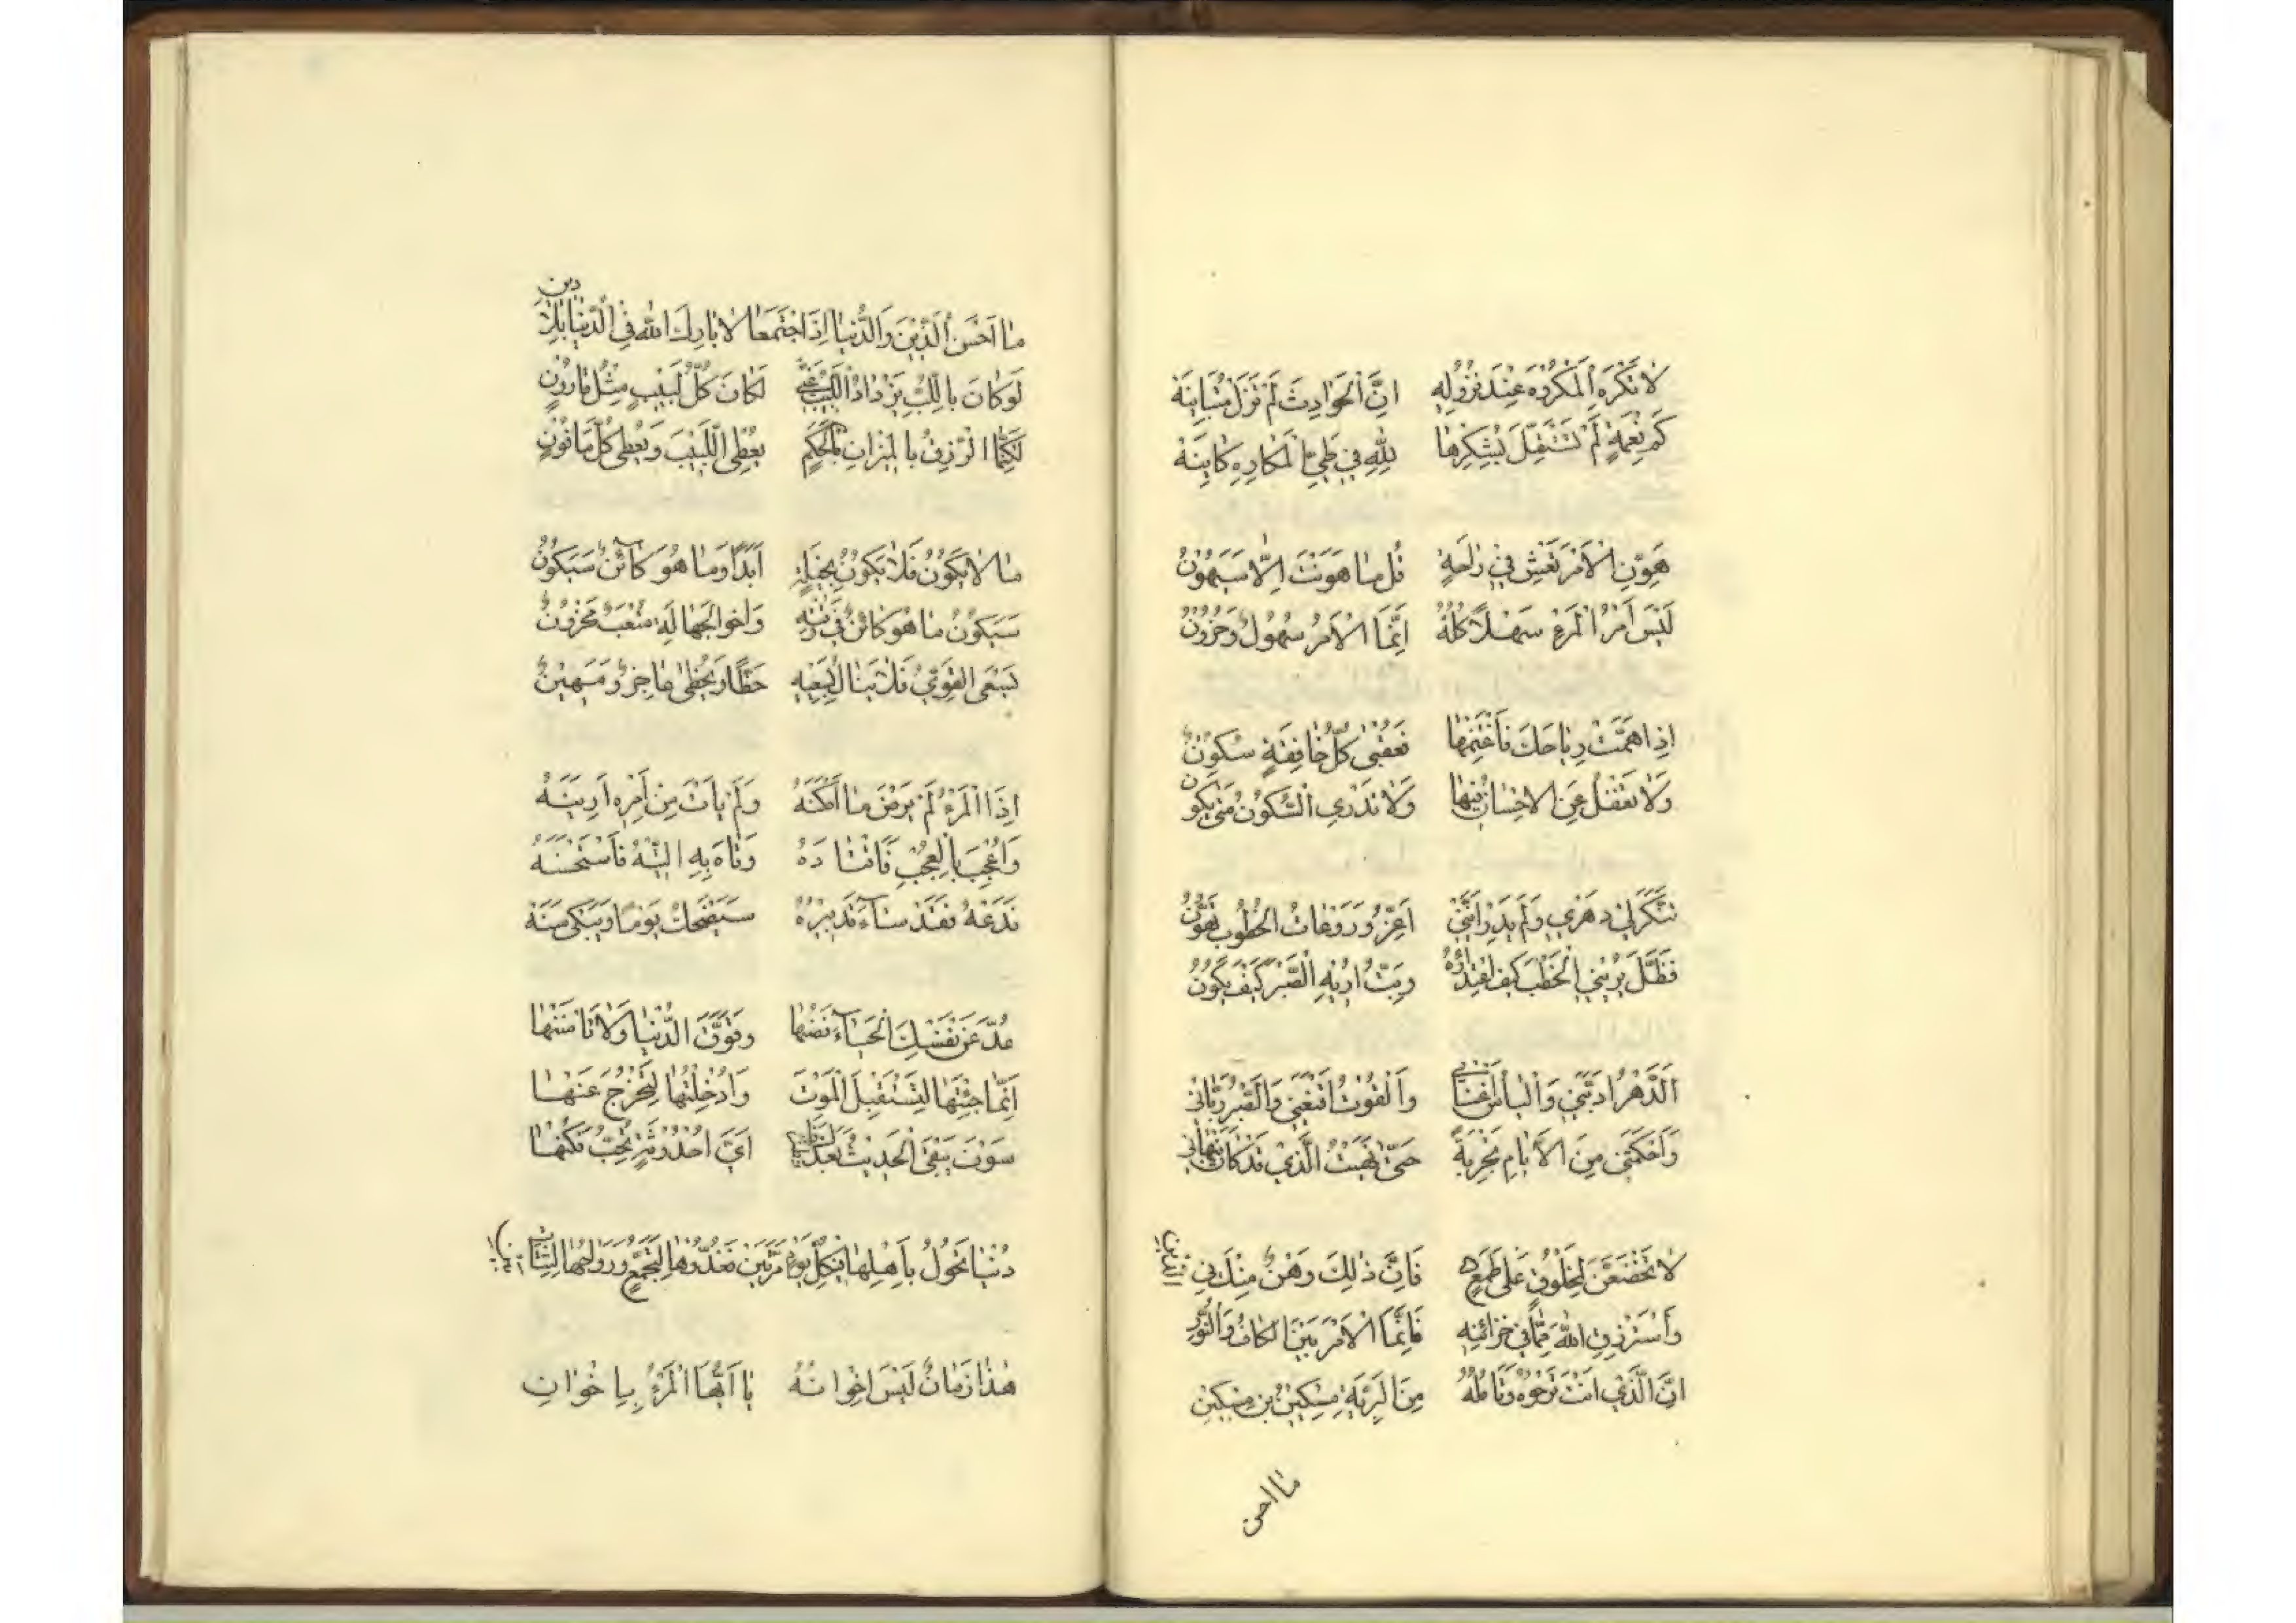 لَا تَكْرَهِ الْمَكْرُوهَ عِنْدَ نُزُولِهِ اِنَّ الْحَوَادِثَ لَمْ تَزَلْ مُتَبَايِنَهْ
كَمْ نِعْمَةٍ لَمْ تَسْتَقِلَّ بِشُكْرِهَا لِلّٰهِ فِي طَيِّ الْمَكَارِهِ كَايِنَهْ
هَوِّنِ الْاَمْرَ تَعِشْ فِي رَاحَةٍ قُل مَا هَوَّنْتَ اِلَّا سَيَهُونُ
لَيْسَ اَمْرُ الْمَرْءِ سَهْلًا كُلُّهُ اِنَّمَا الْاَمْرُ سُهُولٌ وَحُزُونُ
اِذَا هَبَّتْ رِيَاحُكَ فَاغْتَنِمْهَا فَعُقْبٰى كُلِّ خَافِقَةٍ سُكُونٌ
وَلَا تَغْفُلْ عَنِ الْاِحْسَانِ فِيهَا وَلَا تَدْرِي السُّكُونُ مَتٰى يَكُونُ
تَنَكَّرَ لِي دَهْرِي وَلَمْ يَدْرِ اَنَّنِي اَعِزُّ وَرَوْعَاتُ الْخُطُوبِ تَهُونُ
فَظَلَّ يُرِينِي الْخَطْبَ كَيْفَ اعْتِدَاؤُهُ وَبِتُّ اُرِيْهِ الصَّبْرَ كَيْفَ يَكُونُ
اَلدَّهْرُ اَدَّبَنِي وَالْيَأْسُ اَغْنَانِي وَالْقُوتُ اَقْنَعَنِي وَالصَّبْرُ رَبَّانِي
وَاَحْكَمَتْنِي مِنَ الْاَيَّامِ تَجْرِبَةٌ حَتّٰى نَهَيْتُ الَّذِي قَدْ كَانَ يَنْهَانِي
لَا تَخْضَعَنَّ لِمَخْلُوقٍ عَلٰى طَمَعٍ فَاِنَّ ذٰلِكَ وَهْنٌ مِنْكَ فِي الدِّينِ
وَاسْتَرْزِقِ اللهَ مِمَّا فِي خَزَائِنِهِ فَاِنَّمَا الْاَمْرُ بَيْنَ الْكَافِ وَالنُّونِ
اِنَّ الَّذِي اَنْتَ تَرْجُوهُ وَتَأْمُلُهُ مِنَ الْبَرِيَّةِ مِسْكِينُ بْنُ مِسْكِينِ
مَا اَحْسَنَ
مَا اَحْسَنَ الدِّيْنَ وَالدُّنْيَا اِذَا اجْتَمَعَا لَا بَارَكَ اللهُ فِي الدُّنْيَا بِلَا دِينِ
لَوْ كَانَ بِاللُّبِّ يَزْدَادُ اللَّبِيْبُ غِنًى لَكَانَ كُلُّ لَبِيْبٍ مِثْلَ قَارُوْنِ
لَكِنَّمَا الرِّزْقُ بِالْمِيْزَانِ مِنْ حَكَمٍ يُعْطِي اللَّبِيْبَ وَيُعْطِي كُلَّ مَافُوْنِ
مَا لَا يَكُوْنُ فَلَا يَكُوْنُ بِحِيْلَةٍ اَبَدًا وَمَا هُوَ كَائِنٌ سَيَكُوْنُ
سَيَكُوْنُ مَا هُوَ كَائِنٌ فِي وَقْتِهِ وَاَخُو الْجَهَالَةِ مُتْعَبٌ مَحْزُوْنٌ
يَسْعَى الْقَوِيُّ فَلَا يَنَالُ بِسَعْيِهِ حَظًّا وَيَحْظٰى عَاجِزٌ وَمَهِيْنٌ
اِذَا الْمَرْءُ لَمْ يَرْضَ مَا اَمْكَنَهُ وَلَمْ يَأْتِ مِنْ اَمْرِهِ اَزْيَنَهُ
وَاُعْجِبَ بِالْعُجْبِ فَاقْتَادَهُ وَتَاهَ بِهِ التِّيْهُ فَاسْتَحْسَنَهُ
فَدَعْهُ فَقَدْ سَآءَ تَدْبِيْرُهُ سَيَضْحَكُ يَوْمًا وَيَبْكِي سَنَهْ
عَدِّ عَنْ نَفْسِكَ الْحَيَآءَ فَصُنْهَا وَتَوَقَّ الدُّنْيَا وَلَا تَأْمَنْهَا
اِنَّمَا جِئْتَهَا لِتَسْتَقْبِلَ الْمَوْتَ وَاُدْخِلْتَهَا لِتَخْرُجَ عَنْهَا
سَوْفَ يَبْقَى الْحَدِيْثُ بَعْدَكَ اَيَّ اُحْدُوْثَةٍ تُحِبُّ فَكُنْهَا
دُنْيَا تَحُوْلُ بِاَهْلِهَا فِي كُلِّ يَوْمٍ مَرَّتَيْنِ فَغُدُوُّهَا لِتَجَمُّعٍ وَرَوَاحُهَا لِشَتَاتِ بَيْنِ
هٰذَا زَمَانٌ لَيْسَ اِخْوَانُهُ يَا اَيُّهَا الْمَرْءُ بِاِخْوَانِ